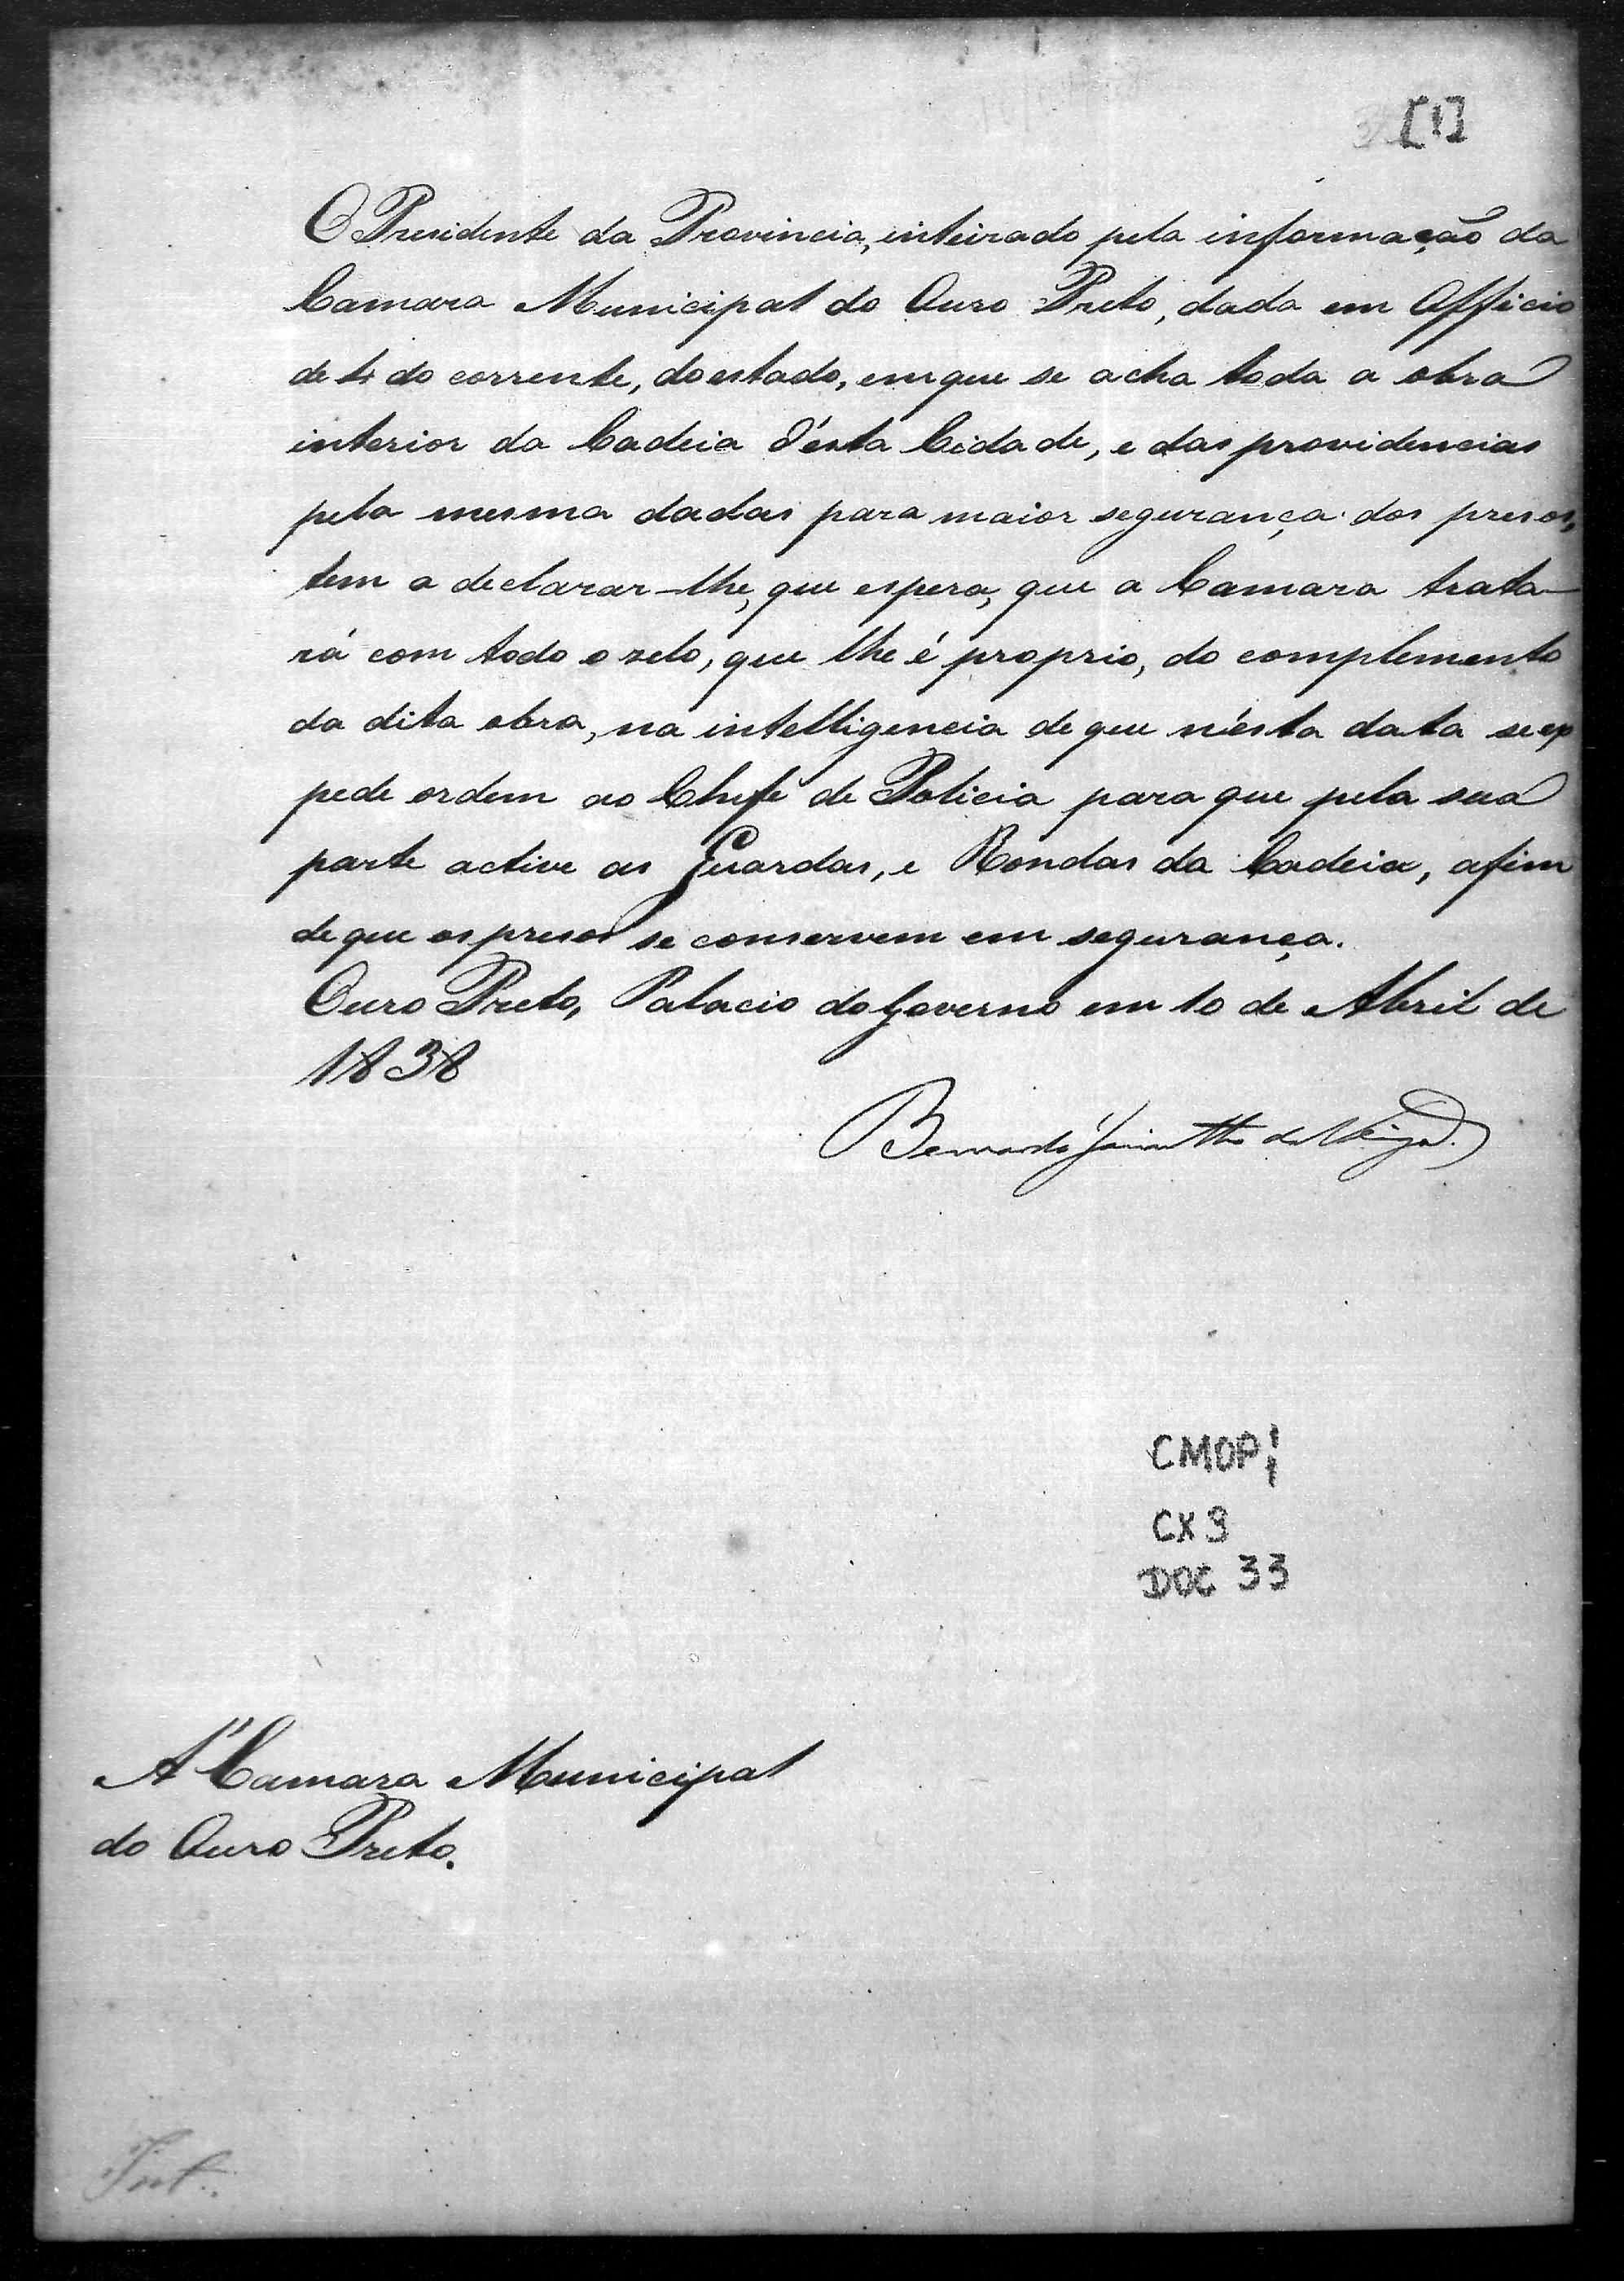 [1]
O Presidente da Provincia, inteirado pela informação da
Camara Municipal do Ouro Preto, dada em Officio
de 4 do corrente, do estado, em que se acha toda a obra
interior da Cadeia d'esta Cidade, e das providencias
pela mesma dadas para maior segurança dos presos,
tem a declarar-lhe, que espera, que a Camara trata-
rá com todo o zelo, que lhe é proprio, do complemento
da dita obra, na intelligencia de que n'esta data se ex
pede ordem ao Chefe de Policia para que pela sua
parte active as Guardas, e Rondas da Cadeia, afim
de que os presos se conservem em segurança.
Ouro Preto, Palacio do Governo em 10 de Abril de
1838
Bernardo Jacintho da Veiga.
CMOP
CX 3
DOC 33
A' Camara Municipal
do Ouro Preto.